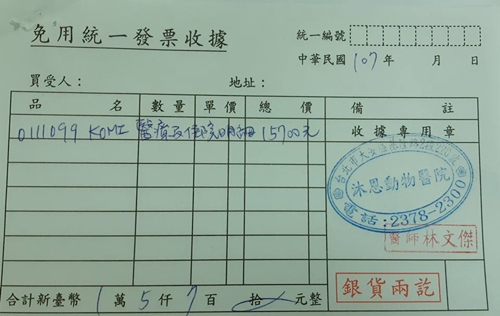 免用統一發票收據
統一編號
中華民國 107 年 月 日
買受人： 地址：
品名 數量 單價 總價 備註
0111099 KOMI 醫療及住院明細 15700元
收據專用章
沐恩動物醫院
電話:2378-2300
醫師林文傑
銀貨兩訖
合計新臺幣 1 萬 5 仟 7 百 拾 元整